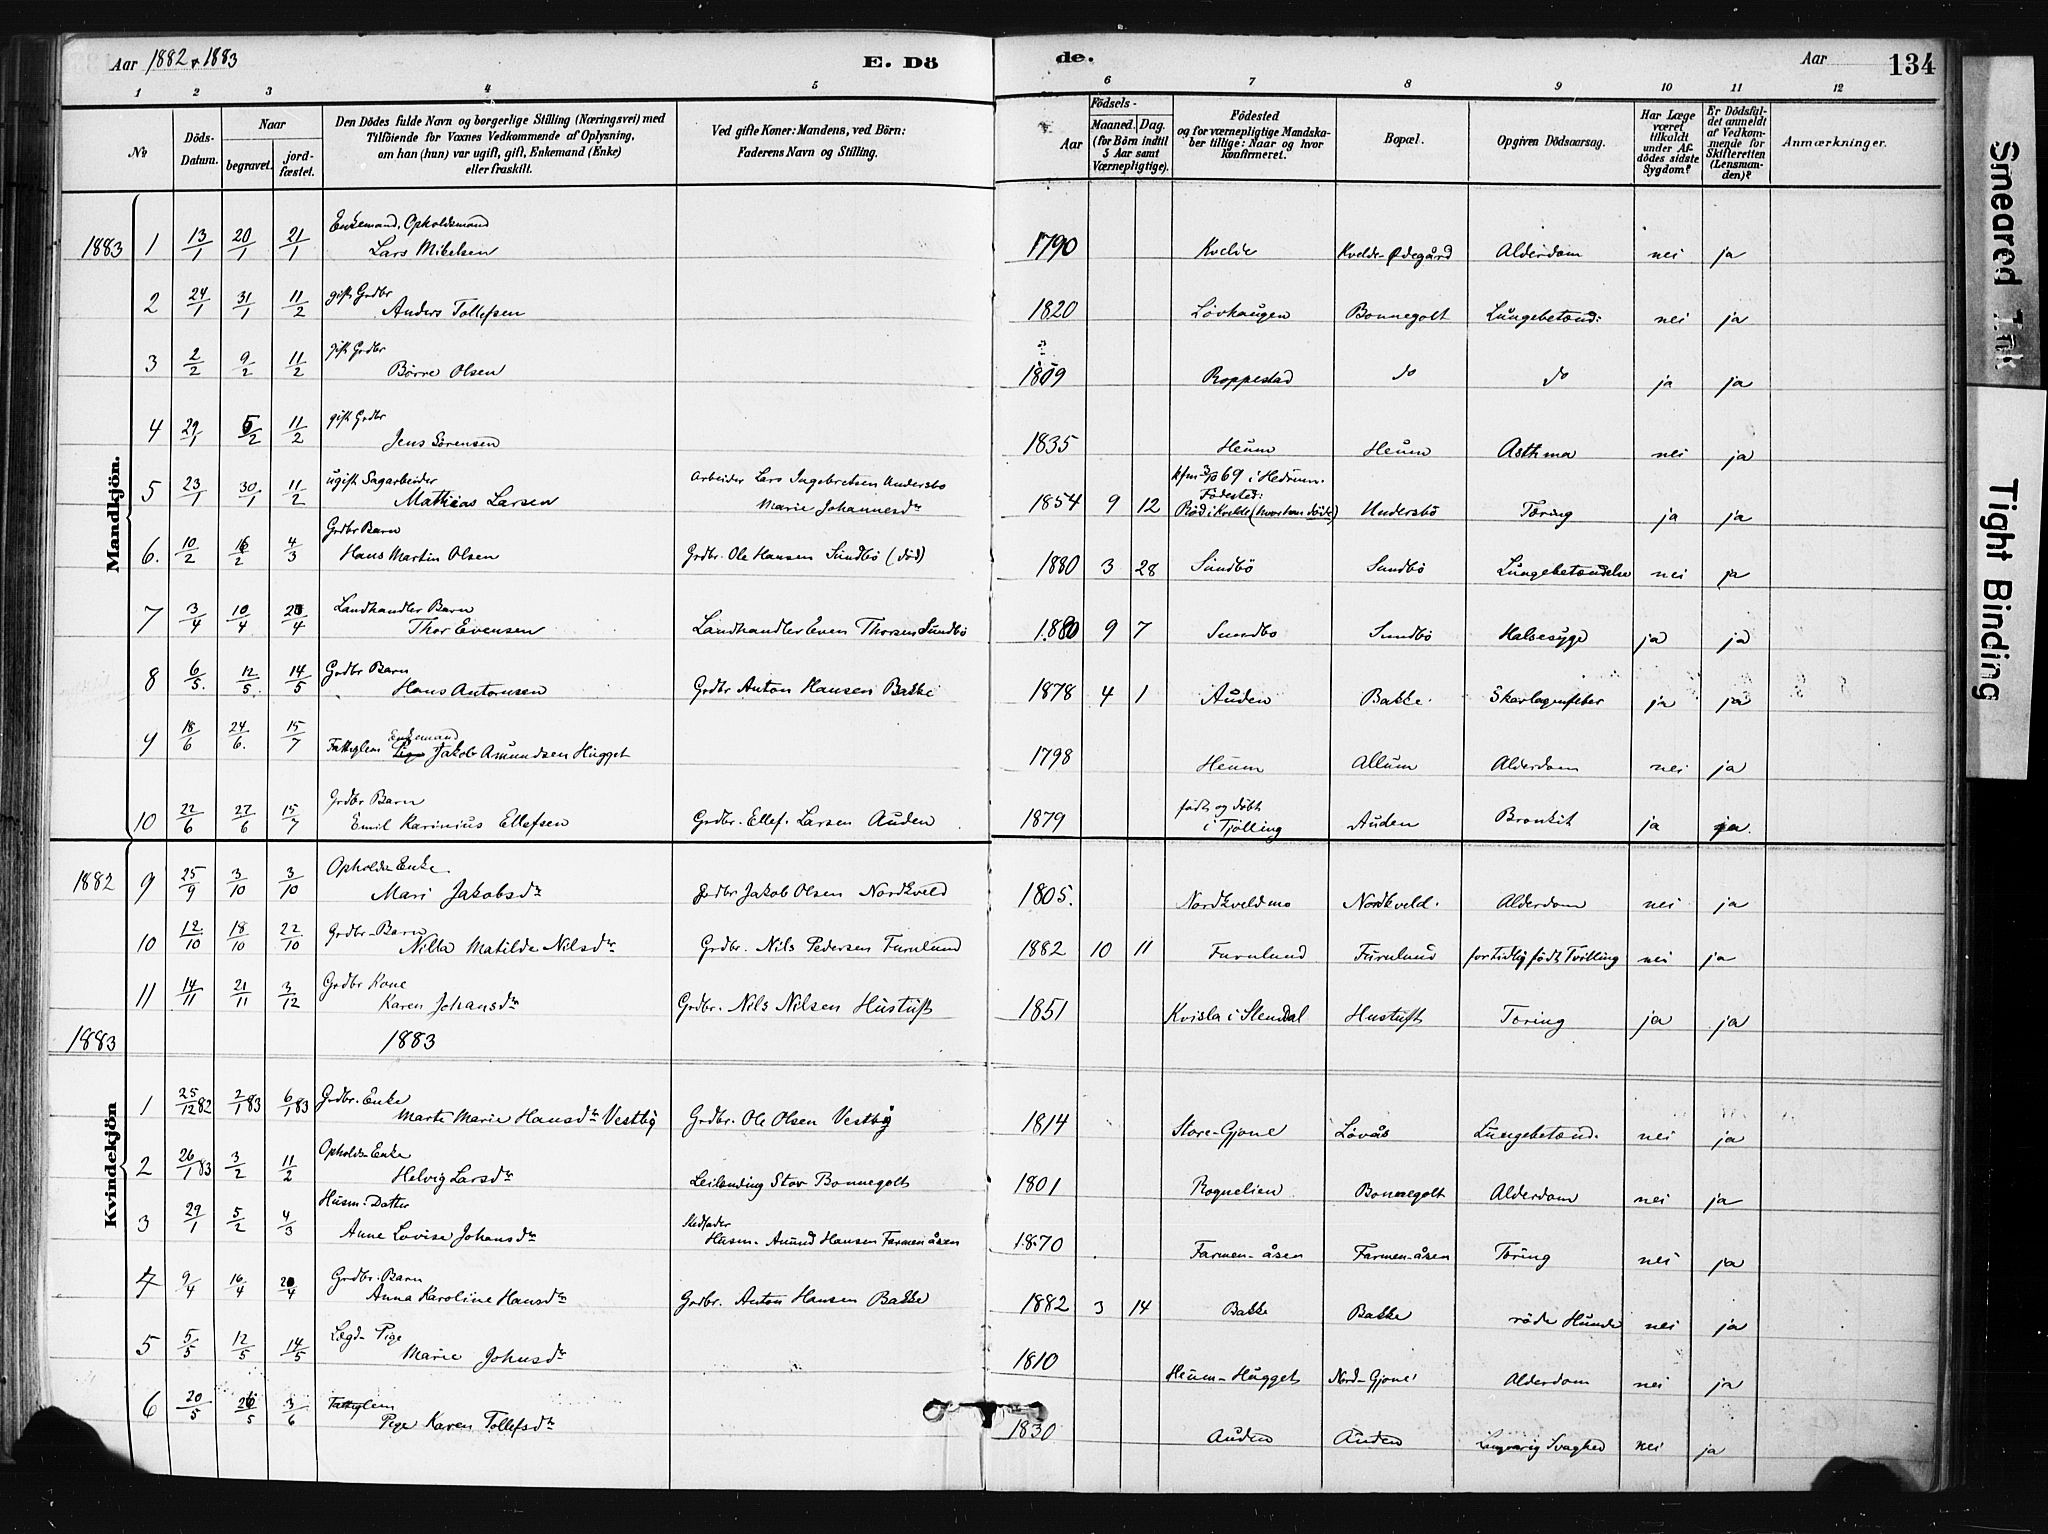 Aar 1882 & 1883 E. Dö de. Aar 134
1 2 3 4 5 6 7 8 9 10 11 12
No. Döds-Datum. Naar begravet. jordfæstet. Den Dödes fulde Navn og borgerlige Stilling (Næringsvei) med Tilföiende for Voxnes Vedkommende af Oplysning, om han (hun) var ugift, gift, Enkemand (Enke) eller fraskilt. Ved gifte Koner: Mandens, ved Börn: Faderens Navn og Stilling. Aar Födsels- Maaned. Dag. (for Börn indtil 5 Aar samt Værnepligtige). Födested og for værnepligtige Mandskaber tillige: Naar og hvor konfirmeret. Bopæl. Opgiven Dödsaarsag. Har Læge været tilkaldt under Afdödes sidste Sygdom? Er Dödsfaldet anmeldt af Vedkommende for Skifteretten (Lensmanden)? Anmærkninger.
Mandkjön.
Enkemand, Opholdsmand
1883 1 13/1 20/1 21/1 Lars Mikelsen 1790 Kvelde Kvelde-Ødegård Alderdom nei ja
gift Grdbr
2 24/1 31/1 11/2 Anders Tollefsen 1820 Løvhaugen Bonnegolt Lungebetænd: nei ja
gift Grdbr
3 2/2 9/2 11/2 Börre Olsen 1809 Roppestad do do ja ja
gift Grdbr
4 29/1 5/2 11/2 Jens Sørensen 1835 Heum Heum Asthma nei ja
ugift Sagarbeider Arbeider Lars Ingebretsen Undersbo kfm 3/10 69 i Hedrum.
5 23/1 30/1 11/2 Mathias Larsen Marie Johannesdtr 1854 9 12 Födested: Röd i Kvelde (hvor han döde) Undersbö Tæring ja ja
Grdbr Barn
6. 10/2 16/2 4/3 Hans Martin Olsen Grdbr. Ole Hansen Sundbö (död) 1880 3 28 Sundbö Sundbö Lungebetændelse nei ja
Landhandler Barn
7 3/4 10/4 20/4 Thor Evensen Landhandler Even Thorsen Sundbö 1880 9 7 Sundbo Sundbö Halsesyge ja ja
Grdbr Barn
8 6/5. 12/5. 14/5 Hans Antonsen Grdbr Anton Hansen Bakke 1878 4 1 Auden Bakke. Skarlagensfeber ja ja
Enkemand
9 18/6 24/6. 15/7 Fattiglem Pige Jakob Amundsen Hugget 1798 Heum Allum Alderdom nei ja
Grdbr Barn födt og döbt
10 22/6 27/6 15/7 Emil Karinius Ellefsen Grdbr. Ellef. Larsen Auden 1879 i Tjölling Auden Bronkit ja ja.
Kvindekjön
Opholds Enke.
1882 9 25/9 3/10 3/10 Mari Jakobsdtr Grdbr Jakob Olsen Nordkveld 1805. Nordkveldmo Nordkveld. Alderdom nei ja
Grdbr-Barn
10 12/10 18/10 22/10 Nilla Matilde Nilsdtr Grdbr. Nils Pedersen Furulund 1882 10 11 Furulund Furulund for tidlig födt Tvilling nei ja
Grdbr Kone
11 14/11 21/11 3/12 Karen Johansdtr Grdbr. Nils Nilsen Hustuft 1851 Kvisla i Slemdal Hustuft Tæring ja ja
1883 1883
Grdbr. Enke
1 25/12 82 2/1 83 6/1 83 Marte Marie Hansdtr Vestby Grdbr. Ole Olsen Vestby 1814 Store-Gjone Løvås Lungebetænd. nei ja
Opholds-Enke
2 26/1 83 3/2 11/2 Helvig Larsdtr Leilending Stav Bonnegolt 1801 Rognelien Bonnegolt Alderdom nei ja
Husm. Datter Stedfader
3 29/1 5/2 4/3 Anne Lovise Johansdtr Husm. Amund Hansen Farmenåsen 1870 Farmen-åsen Farmen-åsen Tæring nei ja
Grdbr. Barn
4 9/4 16/4 20/4 Anna Karoline Hansdtr Grdbr. Anton Hansen Bakke 1882 3 14 Bakke Bakke röde Hunde nei ja
Lægd-Pige
5 5/5 12/5 14/5 Marie Johnsdtr 1810 Heum-Hugget Nord-Gjone Alderdom nei ja
Fattiglem
6 20/5 26/5 3/6 Pige Karen Tollefsdtr 1830 Auden Auden Langvarig Svaghed nei ja
Smeared Ink
Tight Binding